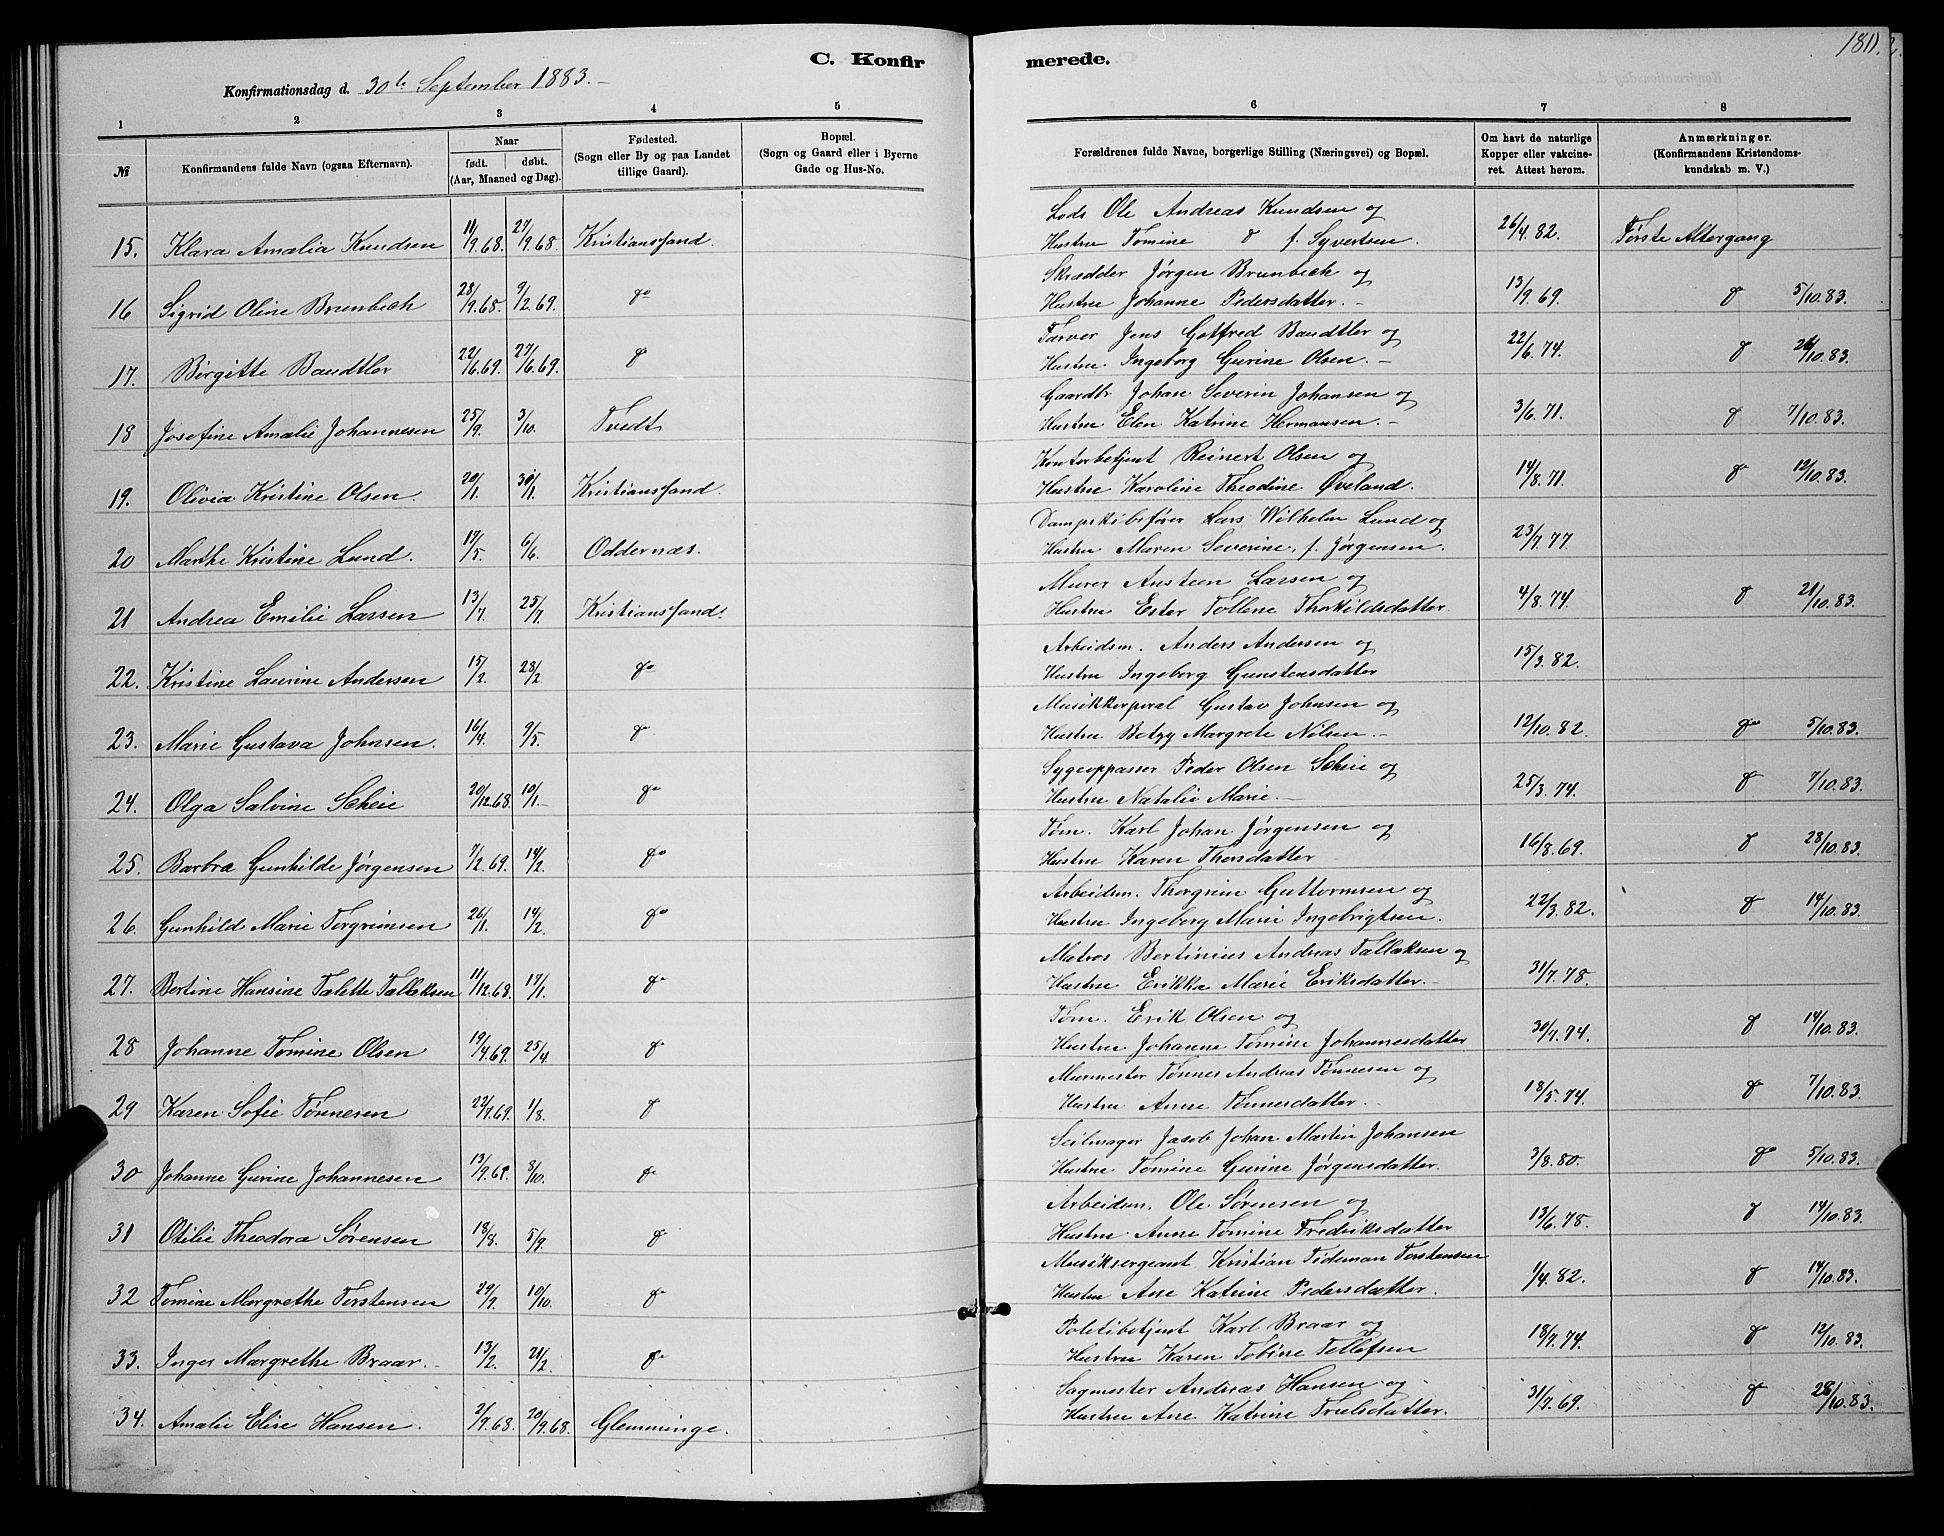 180.
C. Konfirmerede.
Konfirmationsdag d. 30te September 1883.
1 2 3 4 5 6 7 8
№ Konfirmandens fulde Navn (ogsaa Efternavn). Naar født. døbt. (Aar, Maaned og Dag). Fødested. (Sogn eller By og paa Landet tillige Gaard). Bopæl. (Sogn og Gaard eller i Byerne Gade og Hus-No. Forældrenes fulde Navne, borgerlige Stilling (Næringsvei) og Bopæl. Om havt de naturlige Kopper eller vakcineret. Attest herom. Anmærkninger. (Konfirmandens Kristendomskundskab m. V.)
15. Klara Amalia Knudsen 11/9.68. 27/9.68. Kristianssand. Lods Ole Andreas Knudsen og
Hustru Tomine f. Syvertsen. 26/4.82. Første Altergang
16 Sigrid Oline Brunbech 28/9.68. 9/2.69. do Skrædder Jørgen Brunbech og
Hustru Johanne Pedersdatter. 13/9.69. do 5/10.83.
17. Birgitte Baudtler 22/6.69. 27/6.69. do Farver Jens Gotfred Baudtler og
Hustru Ingeborg Gurine Olsen. 22/6.74. do /10.83.
18 Josefine Amalie Johannesen 25/9. 3/10. Tvedt Gaardbr Johan Severin Johansen og
Hustru Elen Katrine Hermansen. 3/6.71. do 7/10.83.
19. Olivia Kristine Olsen. 20/1. 30/1. Kristianssand. Kontorbetjent Reinert Olsen og
Hustru Karoline Theodine Øveland. 14/8.71. do 12/10.83.
20 Marthe Kristine Lund. 17/5. 6/6. Oddernæs. Dampskibsfører Lars Wilhelm Lund og
Hustru Maren Severine, f. Jørgensen. 23/7.77.
21 Andrea Emilie Larsen 13/7. 25/7. Kristianssand. Murer Ansteen Larsen og
Hustru Ester Tollene Thorkildsdatter 4/8.74. do 21/10.83.
22. Kristine Laurine Andersen 15/2. 28/2 do Arbeidsm. Anders Andersen og
Hustru Ingeborg Gunstensdatter 15/3.82.
23. Marie Gustava Johnsen. 16/4. 9/5. do Musikkorporal Gustav Johnsen og
Hustru Betzy Margrete Nilsen. 12/10.82. do 5/10.83.
24. Olga Salvine Scheie 20/12.68. 10/1. do Sygeoppasser Peder Olsen Scheie og
Hustru Natalie Marie. 25/3.74. do 7/10.83.
25. Barbra Gunhilde Jørgensen 7/2.69. 14/2. do Tøm. Karl Johan Jørgensen og
Hustru Karen Thorsdatter 16/8.69. do 28/10.83.
26. Gunhild Marie Torgrimsen 26/1. 14/2. do Arbeidsm. Thorgrim Guttormsen og
Hustru Ingeborg Marie Ingebrigtsen. 22/3.82. do 14/10.83.
27. Bertine Hansine Talette Tallaksen 11/12.68. 17/1. do Matros Bertinius Andreas Tallaksen og
Hustru Erikka Marie Eriksdatter. 31/7.78.
28 Johanne Tomine Olsen 19/4.69. 25/4. do Tøm. Erik Olsen og
Hustru Johanne Tomine Johannesdatter 30/7.74. do 14/10.83.
29 Karen Sofie Tønnesen 22/7.69. 1/8. do Murmester Tønnes Andreas Tønnesen og
Hustru Anne Tønnesdatter. 18/5.74. do 7/10.83.
30 Johanne Gurine Johannesen 13/9.69. 8/10. do Seilmager Jacob Johan Martin Johansen
Hustru Tomine Gurine Jørgensdatter. 3/8.80. do 5/10.83.
31 Otilie Theodora Sørensen 18/8. 5/9. do Arbeidsm. Ole Sørensen og
Hustru Anne Tomine Fredriksdatter 13/6.78. do 14/10.83.
32 Tomine Margrethe Torstensen 29/9. 10/10. do Musiksergeant Kristian Tideman Torstensen
Hustru Ane Katrine Pedersdatter. 1/4.82. do 14/10.83.
33. Inger Margrethe Braar. 13/2. 21/2. do Politibetjent Karl Braar og
Hustru Karen Tobine Tellefsen 18/7.74. do 12/10.83.
34. Amalie Elise Hansen. 2/9.68. 20/9.68. Glemminge. Sagmester Andreas Hansen og
Hustru Ane Katrine Trulsdatter. 31/7.69. do 28/10.83.